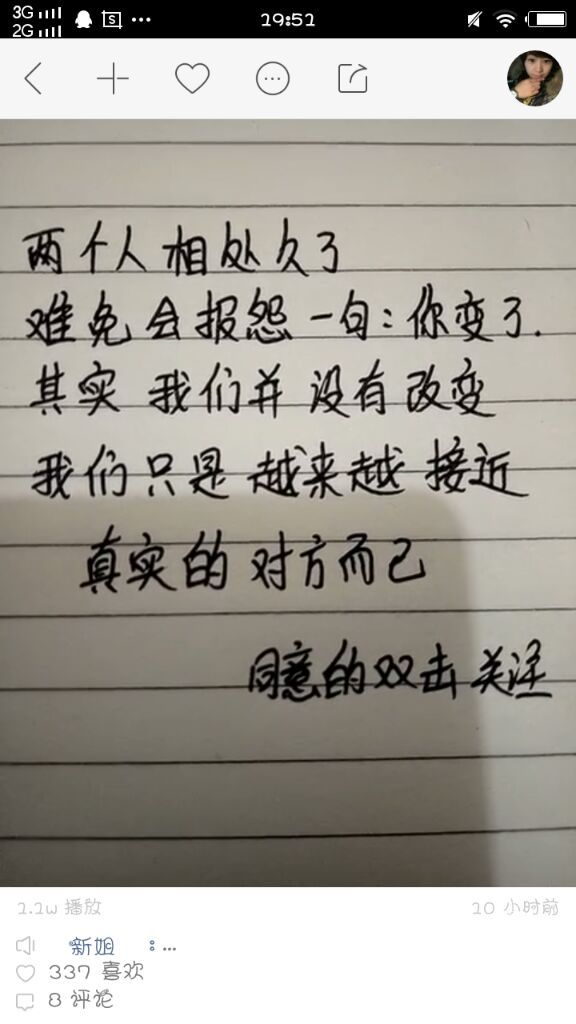 3G
2G
19:52
两个人相处久了
难免会报怨一句:你变了.
其实我们并没有改变
我们只是越来越接近
真实的对方而己
同意的双击关注
2.2w 播放
20 小时前
新姐 :...
337 喜欢
8 评论